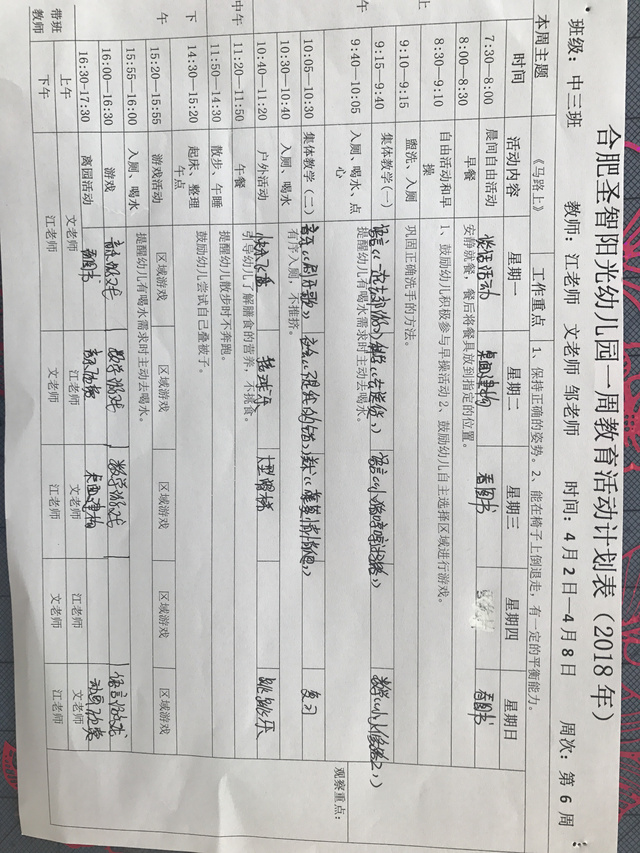 合肥圣智阳光幼儿园一周教育活动计划表（2018年）
班级：中三班 教师：江老师 文老师 邹老师 时间：4月2日—4月8日 周次：第6周
本周主题 《马路上》 工作重点 1、保持正确的姿势。2、能在椅子上倒退走，有一定的平衡能力。
时间 活动内容 星期一 星期二 星期三 星期四 星期日
上午
7:30—8:00 晨间自由活动 桌面建构 看图书 看图书
8:00—8:30 早餐 安静就餐，餐后将餐具放到指定的位置。
8:30—9:10 自由活动和早操 1、鼓励幼儿积极参与早操活动2、鼓励幼儿自主选择区域进行游戏。
9:10—9:15 盥洗、入厕 巩固正确洗手的方法。
9:15—9:40 集体教学(一) 语言 语言 数学
9:40—10:05 入厕、喝水、点心 提醒幼儿有喝水需求时主动去喝水。
10:05—10:30 集体教学（二） 音乐《刷牙歌》 复习
10:30—10:40 入厕、喝水 有序入厕，不推挤。
10:40—11:20 户外活动 大型滑梯 跳跳球
中午
11:20—11:50 午餐 引导幼儿了解膳食的营养，不挑食。
11:50—14:30 散步、午睡 提醒幼儿散步时不奔跑。
下午
14:30—15:20 起床、整理 午点 鼓励幼儿尝试自己叠被子。
15:20—15:55 游戏活动 区域游戏 区域游戏 区域游戏 区域游戏 区域游戏
15:55—16:00 入厕、喝水 提醒幼儿有喝水需求时主动去喝水。
16:00—16:30 游戏 音乐游戏 数学游戏 数学游戏 语言游戏
16:30-17:30 离园活动 看图书 桌面建构
带班教师 上午 文老师 江老师 文老师 江老师 文老师
下午 江老师 文老师 江老师 文老师 江老师
观察重点：